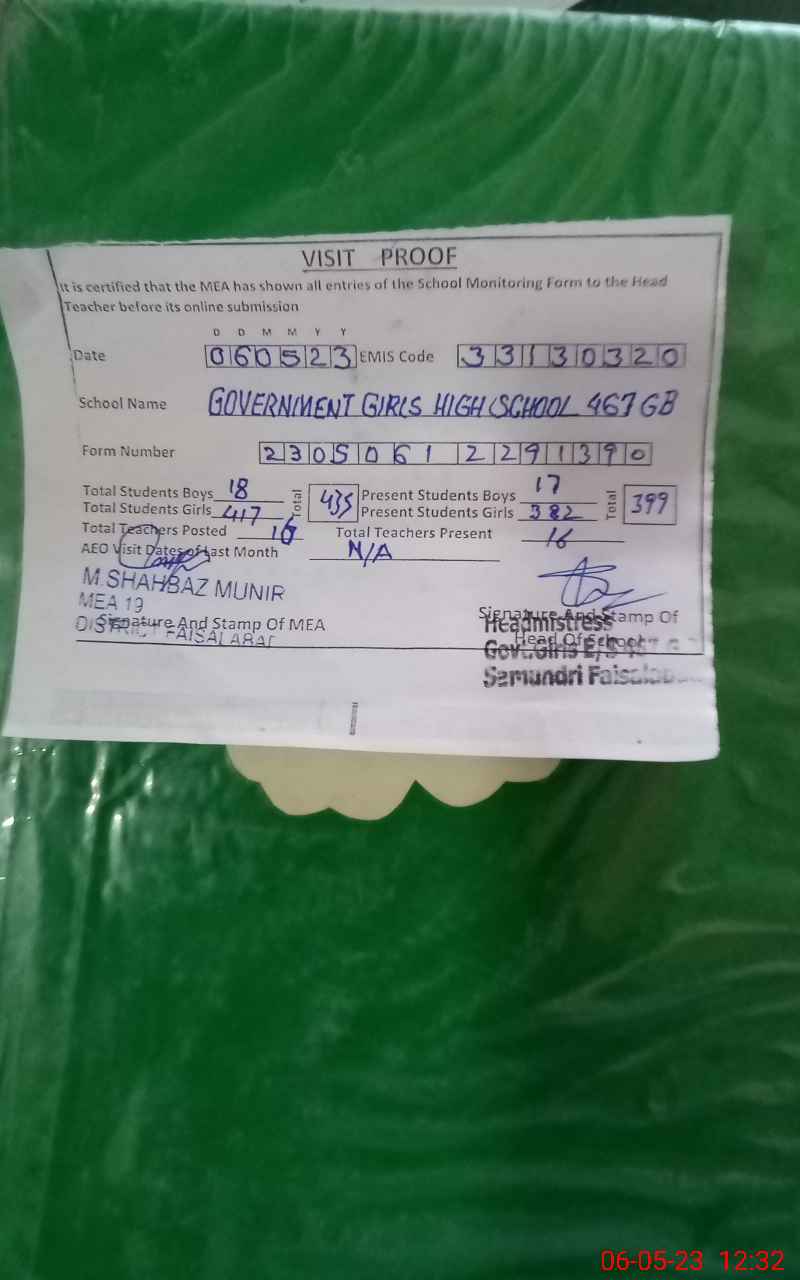 VISIT PROOF
It is certified that the MEA has shown all entries of the School Monitoring Form to the Head
Teacher before its online submission
D D M M Y Y
Date 060523 EMIS Code 33130320
School Name GOVERNMENT GIRLS HIGH SCHOOL 467 GB
Form Number 2305061 2291390
Total Students Boys 18 Total 435 Present Students Boys 17 Total 399
Total Students Girls 417 Present Students Girls 382
Total Teachers Posted 16 Total Teachers Present 16
AEO Visit Dates of Last Month N/A
M.SHAHBAZ MUNIR
MEA 19
Signature And Stamp Of MEA
DISTRICT FAISALABAD
Signature And Stamp Of
Headmistress
Head Of School
Govt.Girls E/S
Samundri Faisalabad
06-05-23 12:32